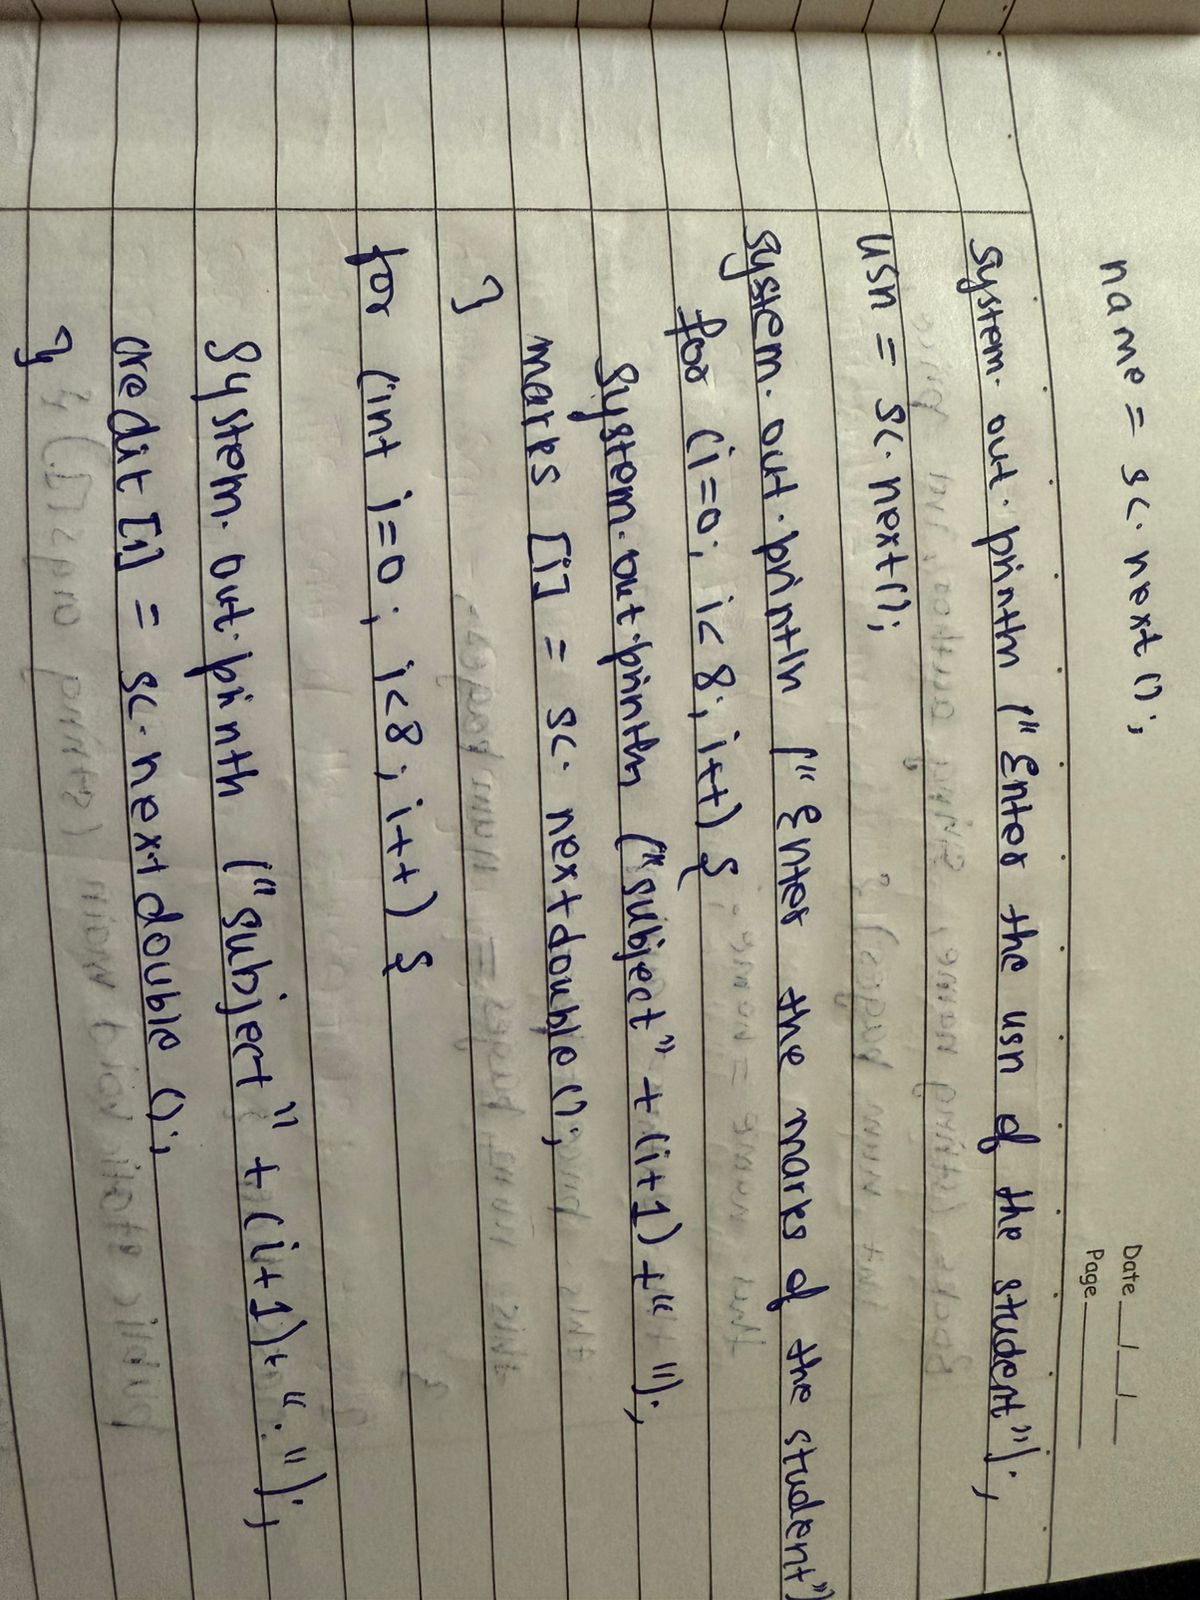 Date __/__/__
Page ______
name = sc.next();
System.out.println ("Enter the usn of the student");
usn = sc.next();
System.out.println ("Enter the marks of the student")
for (i=0; i<8; i++) {
System.out.println ("subject" + (i+1) + " ");
marks [i] = sc.nextdouble();
}
for (int i=0; i<8; i++) {
System.out.println ("subject" + (i+1) + ": ");
credit [i] = sc.nextdouble ();
}